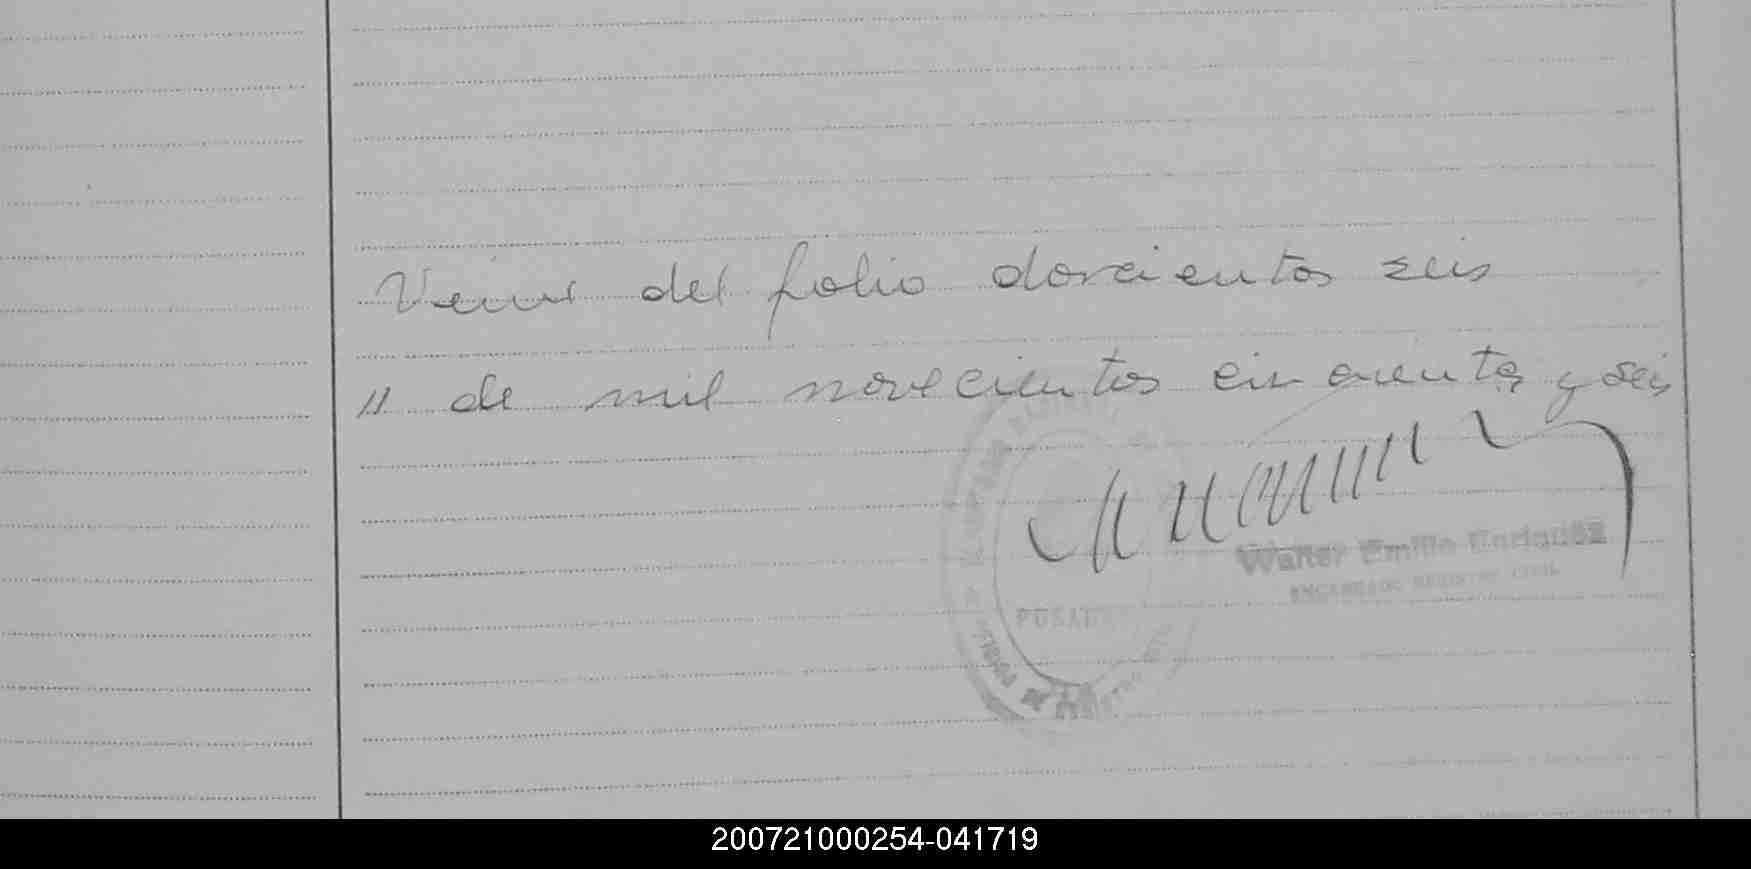 Viene del folio doscientos seis
" de mil novecientos cincuenta y seis
Walter Emilio Enriquez
ENCARGADO REGISTRO CIVIL
POSADAS
200721000254-041719